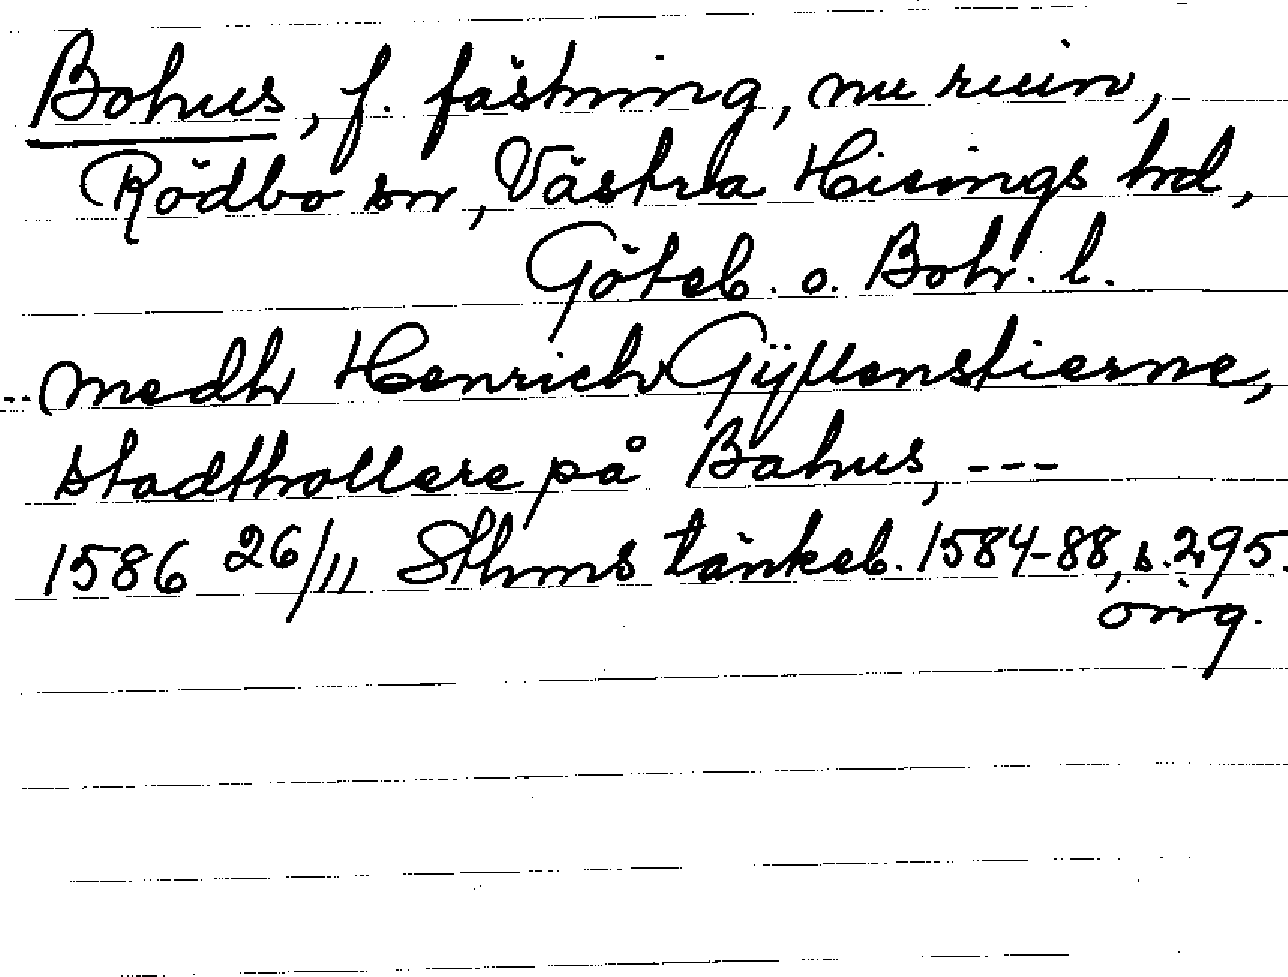 Bohus, f. fästning, nu ruin,
Rödbo sn, Västra Hisings hd,
Göteb. o. Boh. l.
--- medh Henrich Gÿllenstierne,
stadthollere på Bahus, ---
1586 26/11 Sthms tänkeb. 1584-88, s. 295.
orig.